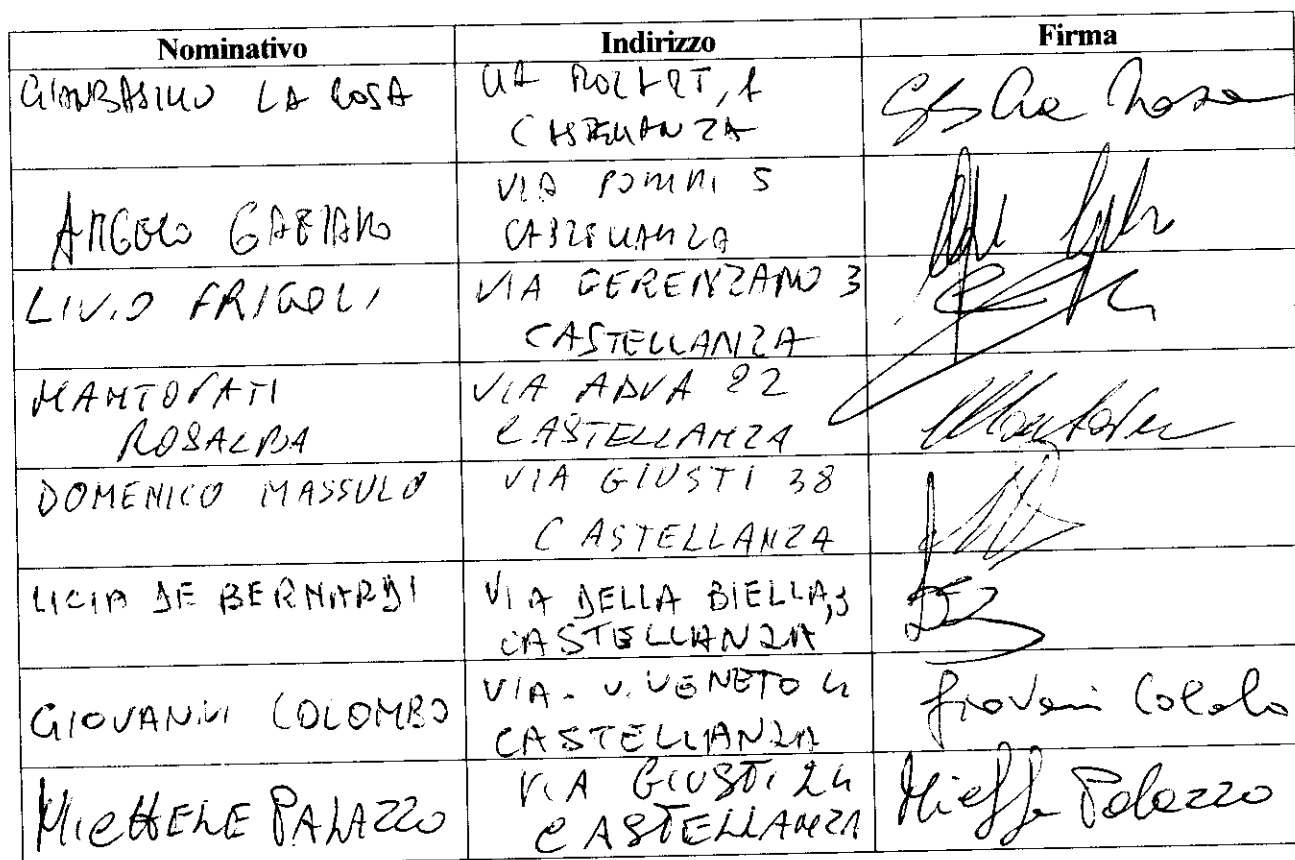 Nominativo Indirizzo Firma
GIANBASILIO LA ROSA
VIA 1
CASTELLANZA
La Rosa
ANGELO GAETANO
VIA POMINI 5
CASTELLANZA
LIVIO FRIGOLI
VIA GERENZANO 3
CASTELLANZA
MANTOVANI
ROSALBA
VIA ADDA 22
CASTELLANZA
DOMENICO MASSULO
VIA GIUSTI 38
CASTELLANZA
LICIA DE BERNARDI
VIA DELLA BIELLA, 3
CASTELLANZA
GIOVANNI COLOMBO
VIA. V. VENETO 4
CASTELLANZA
Giovanni Colombo
MICHELE PALAZZO
VIA GIUSTI 24
CASTELLANZA
Michele Palazzo